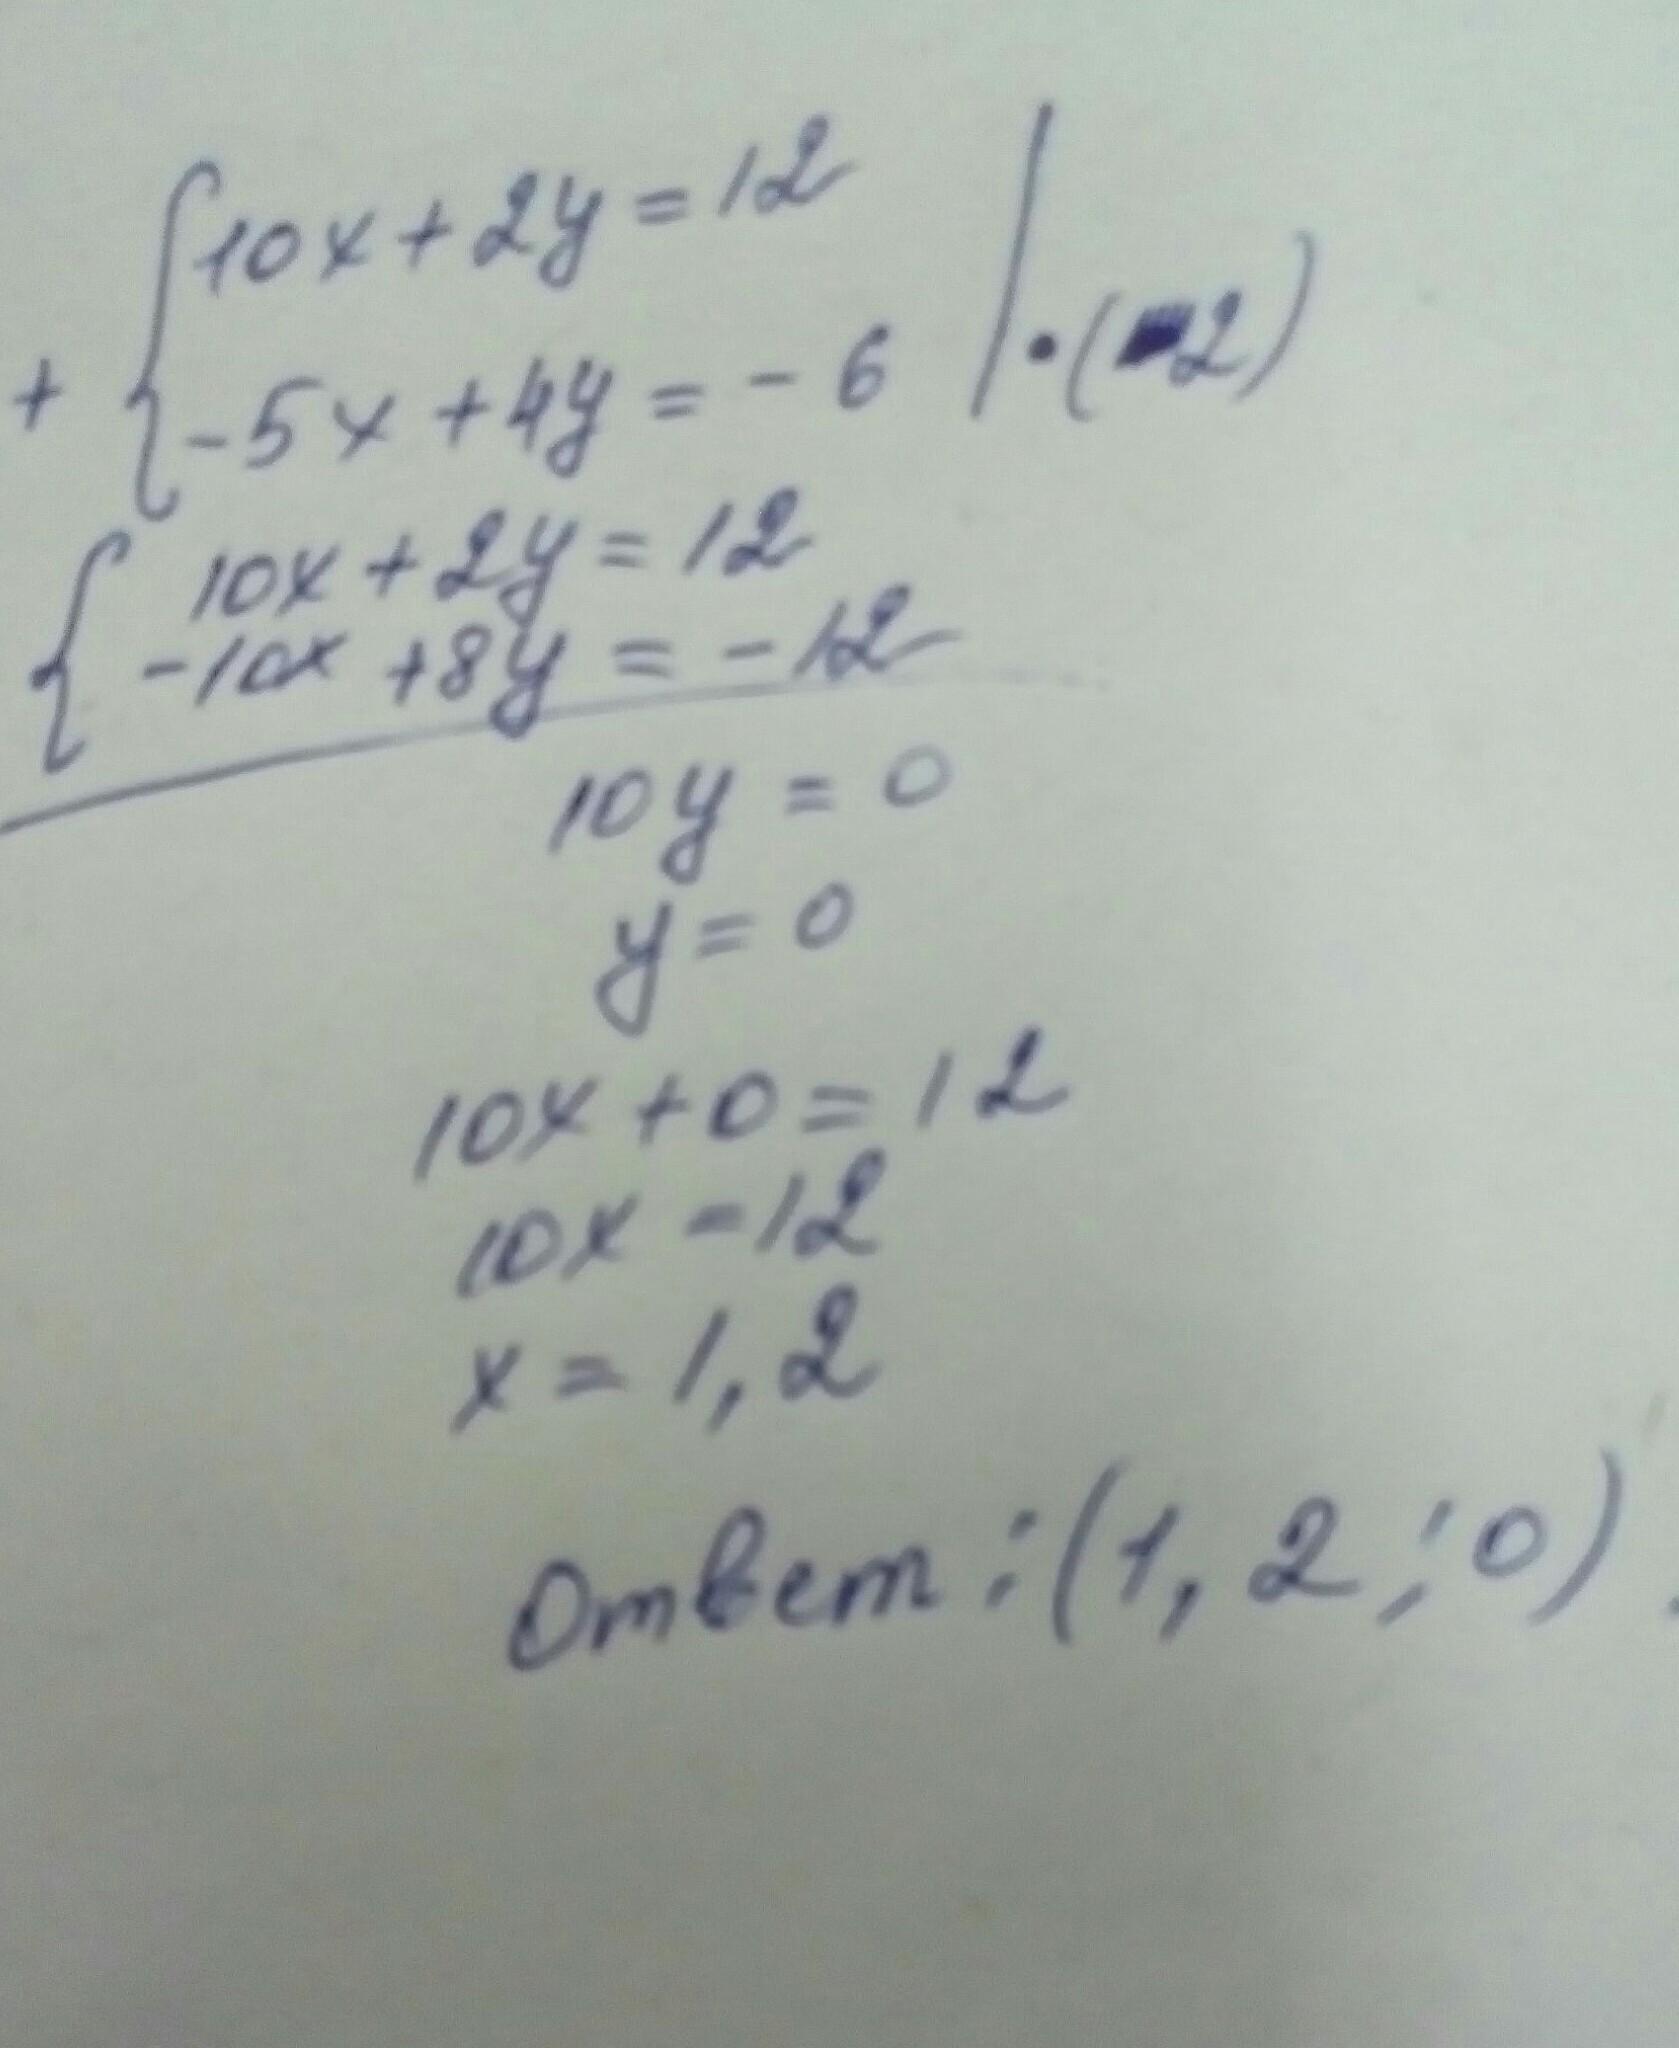 10x + 2y = 12
+ -5x + 4y = -6 | · (2)
10x + 2y = 12
-10x + 8y = -12
10y = 0
y = 0
10x + 0 = 12
10x = 12
x = 1,2
Ответ: (1,2; 0).